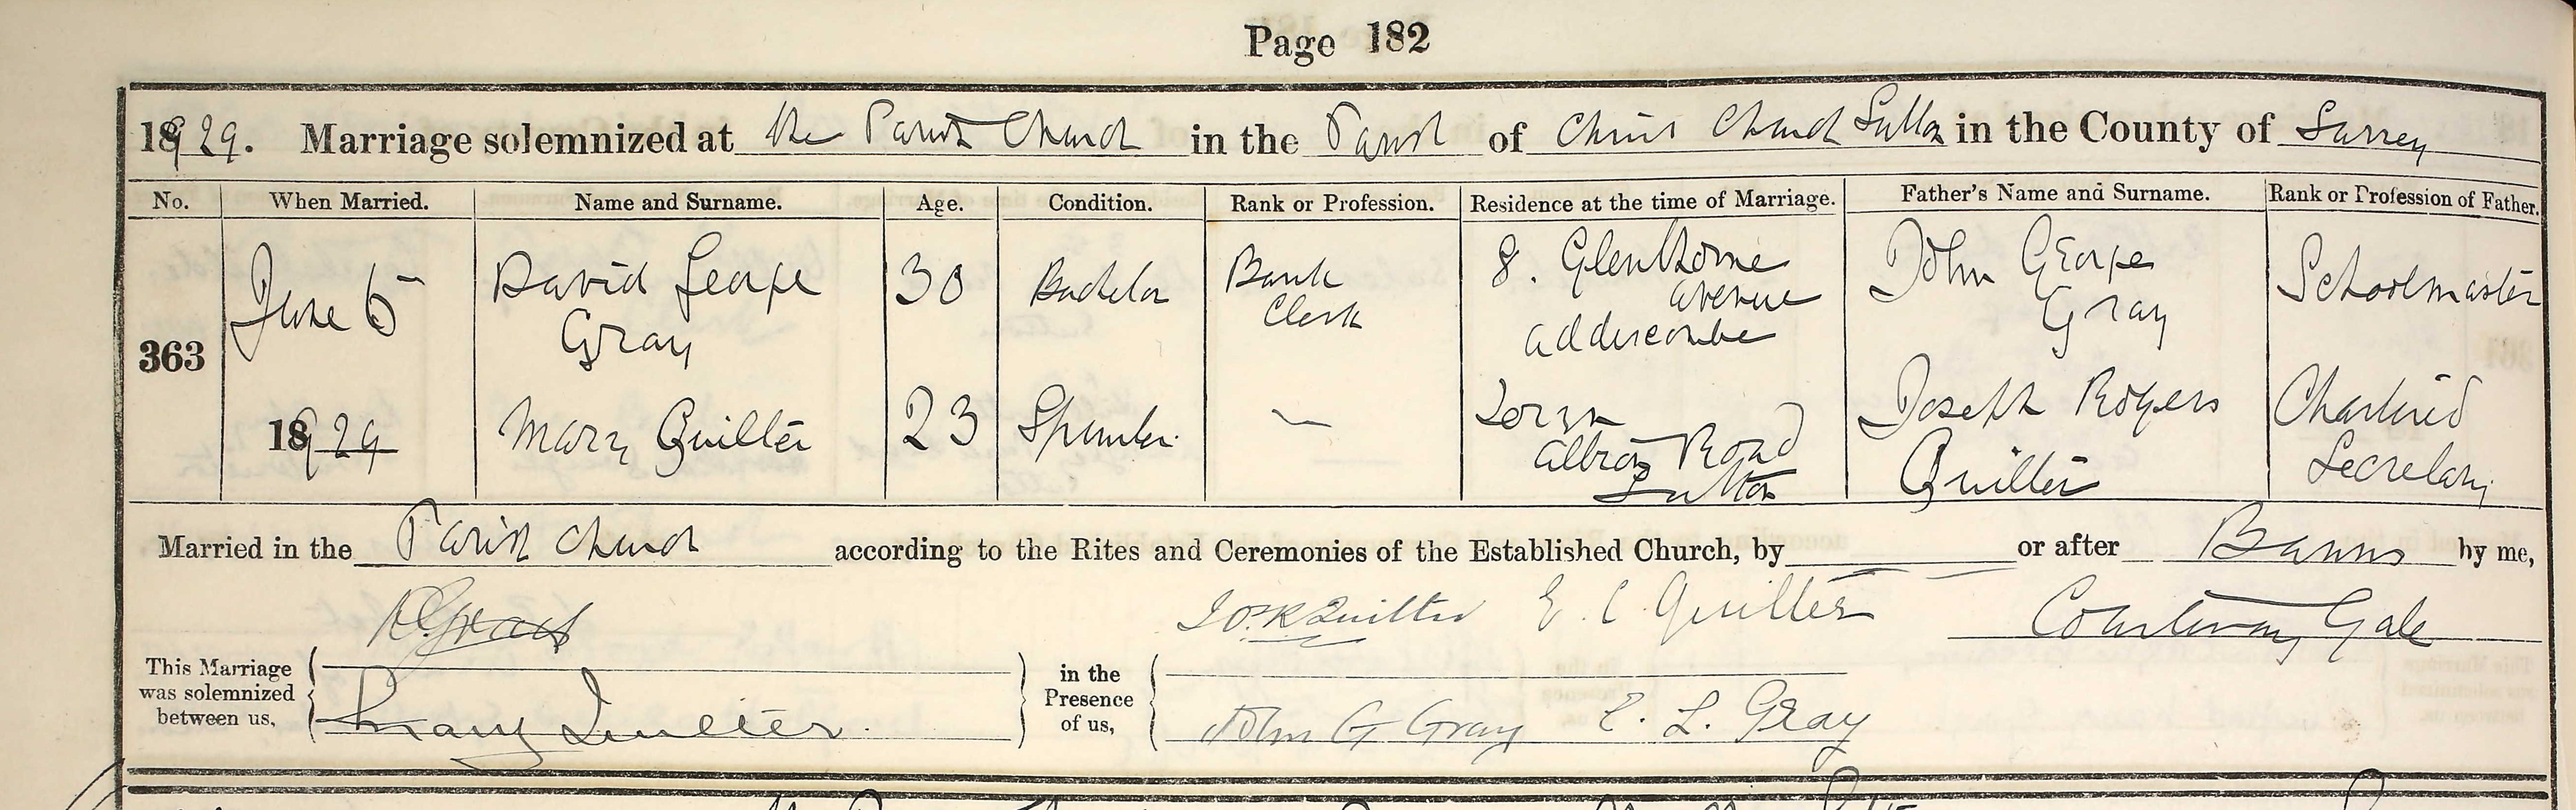 Page 182
1929. Marriage solemnized at the Parish Church in the Parish of Christ Church Sutton in the County of Surrey
No. When Married. Name and Surname. Age. Condition. Rank or Profession. Residence at the time of Marriage. Father's Name and Surname. Rank or Profession of Father.
363
June 5
1929
David George
Gray
30
Bachelor
Bank
Clerk
8. Glenthorne
avenue
addiscombe
John George
Gray
Schoolmaster
Mary Quilter
23
Spinster
—
Lorzn
Albion Road
Sutton
Joseph Rogers
Quilter
Chartered
Secretary
Married in the Parish Church according to the Rites and Ceremonies of the Established Church, by or after Banns by me,
This Marriage
was solemnized
between us,
D.G. Gray
Mary Quilter.
in the
Presence
of us,
Jos. R Quilter E. C. Quilter
John G Gray E. L. Gray
Courtenay Gale